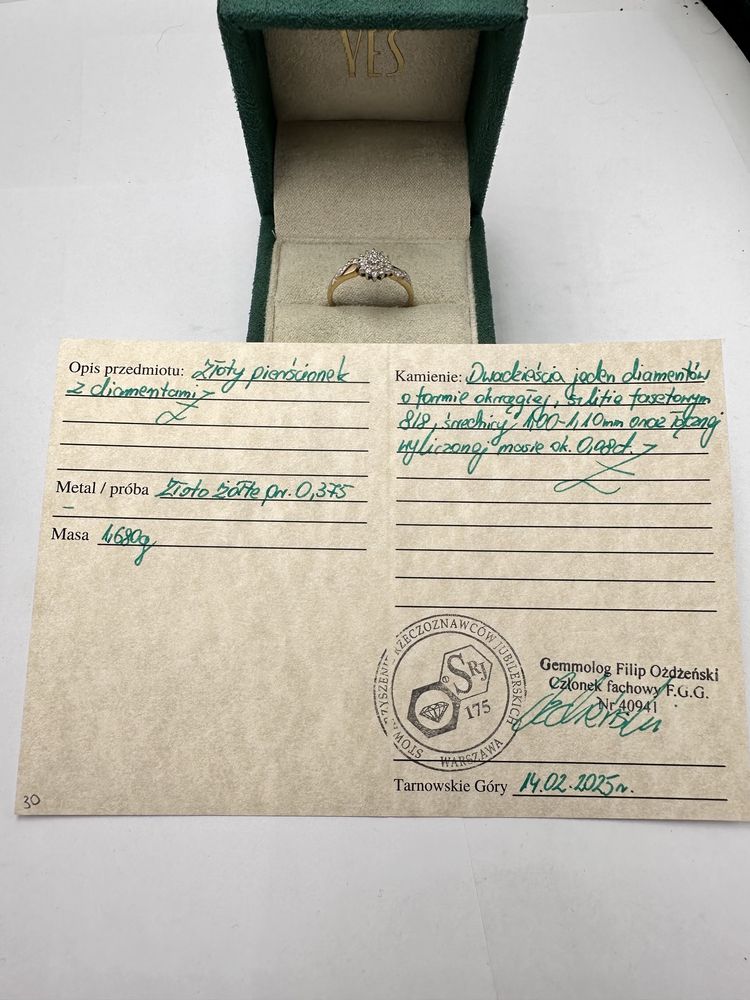 YES
Opis przedmiotu: Złoty pierścionek
z diamentami
Metal / próba Złoto żółte pr. 0,375
Masa 1,680g
Kamienie: Dwadzieścia jeden diamentów
o formie okrągłej, szlifie fasetowym
8/8, średnicy 1,00-1,10mm oraz łącznej
wyliczonej masie ok. 0,08ct.
STOWARZYSZENIE RZECZOZNAWCÓW JUBILERSKICH
WARSZAWA
SRJ
175
Gemmolog Filip Ożdżeński
Członek fachowy F.G.G.
Nr 40941
Tarnowskie Góry 14.02.2025r.
30